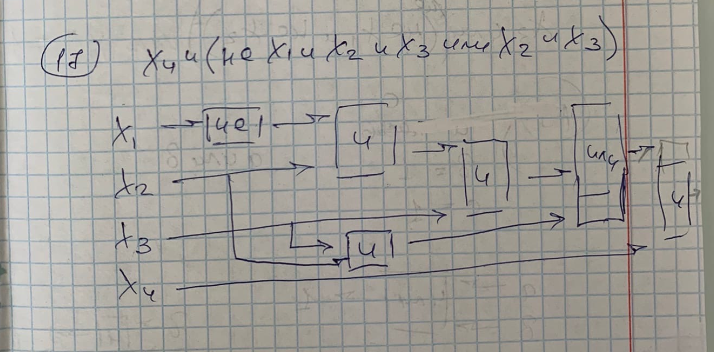 17 X4 и (не X1 и X2 и X3 или X2 и X3)
X1 не и
или
X2 и и
X3 и
X4